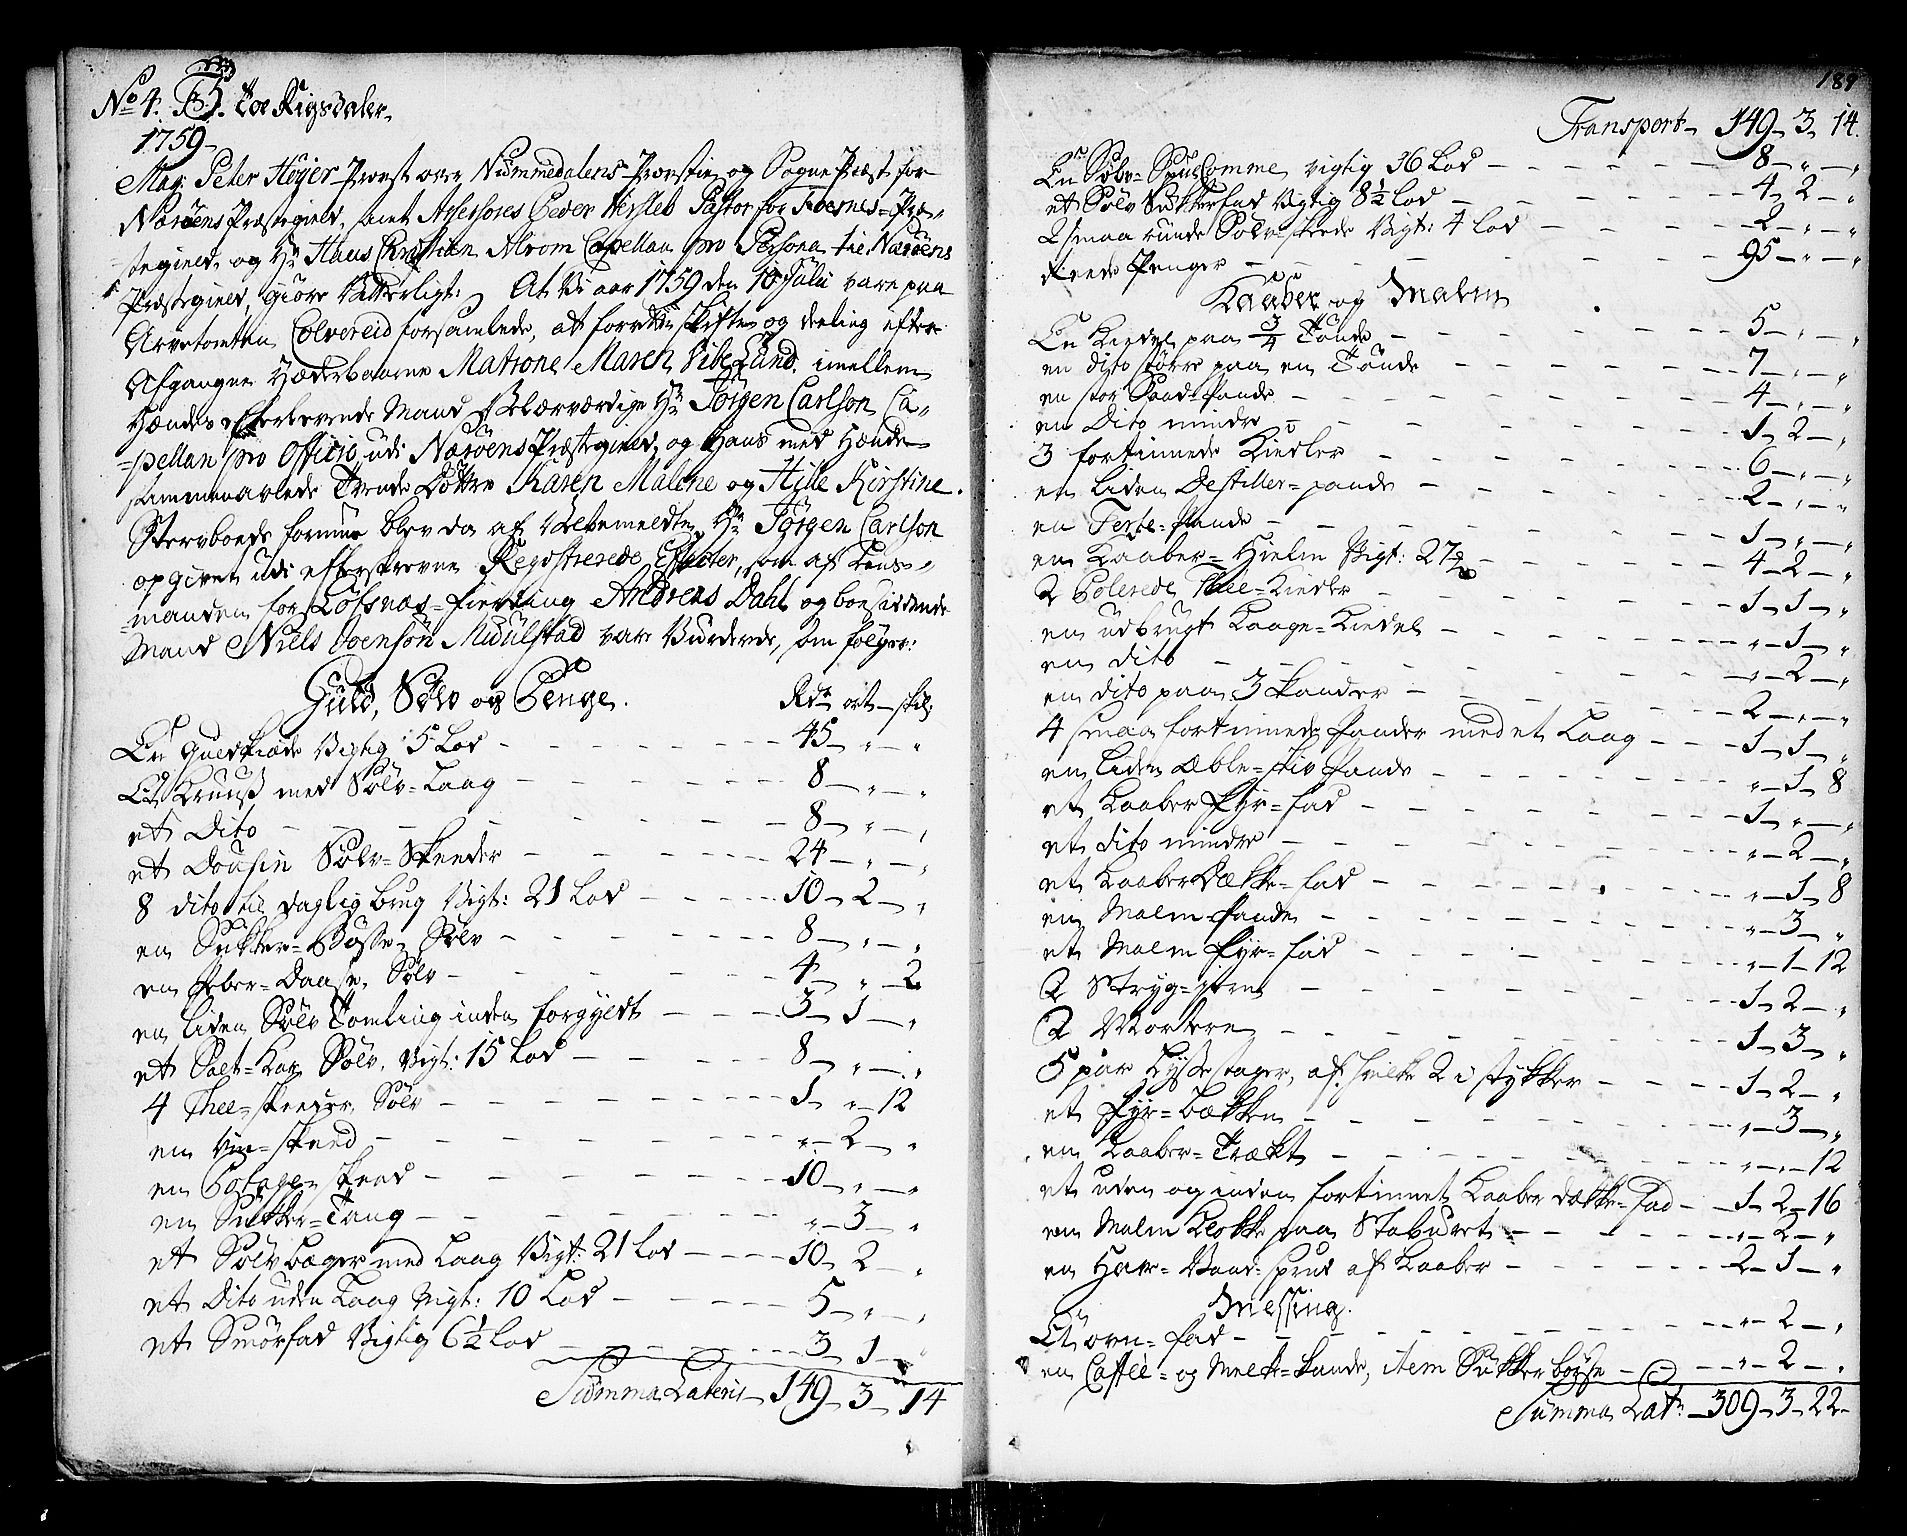 No 4. Toe Rigsdaler
1759
Mag: Peter Høyer Provst over Nummedalens Provstie, og Sogne Præst for
Nærøens Præstegield, samt Assessores Peder Hersleb Pastor for Foesnes Præ-
stegield, og Hr Hans Christian Alrom Capellan pro Persona til Nærøens
Præstegield, Giøre Vitterligt: At Vi aar 1759 den 10 Julii vare paa
Arvetomten Colvereid forsamlede, at forrette skifte og deeling efter
Afgangne Hæderbaarne Matrone Maren Vibe Lund, imellem
Hendes Efterlevende Mand Velærværdige Hr Jørgen Carlson Ca-
-pellan pro Officio udi Nærøens Præstegield, og Hans med Hende
sammenavlede Tvende Døttre Karen Malene og Hille Kirstine.
Stervboeds formue blev da af Velbemeldte Hr Jørgen Carlson
opgivet udi efterskrevne Registrerede Effecter, som af Lens-
-manden for Løfsnæs-fierding Andreas Dahl og boesiddende
Mand Niels Joensøn Midulstad vare Vurderede, som følger:
Guld, Sølv og Penge. Rdr ort skil:
En Guldkiæde Vigtig 5 Lod 45 - " - "
Et Kruus med Sølv-Laag 8 - " - "
et Dito 8 - " - "
et Dousin Sølv-Skeeder 24 - " - "
8 dito til daglig brug Vigt: 21 Lod 10 - 2 - "
en Sukker-Bøsse, Sølv 8 - " - "
en Peber-Daase, Sølv 4 - " - 2
en liden Sølv Tomling inden forgyldt 3 - 1 - "
et Salt-Kar Sølv, Vigt: 15 Lod 8 - " - "
4 Thee-skeeder, Sølv 1 - " - 12
en Vin-skeed " - 2 - "
en Potage-skeed 10 - " - "
en Sukker-Tang " - 3 - "
et Sølvbæger med Laag Vigt: 21 Lod 10 - 2 - "
et Dito uden Laag Vigt: 10 Lod 5 - " - "
et Smørfad Vigtig 6 1/2 Lod 3 - 1 - "
Summa Lateris 149 - 3 - 14
189
Transport 149 - 3 - 14.
En Sølv-Spølcomme vigtig 36 Lod 8 - " - "
et Sølv Sukkerfad Vigtig 8 1/2 Lod 4 - 2 - "
2 smaa runde Sølv-skeede Vigt: 4 Lod 2 - " - "
Penger 95 - " - "
Kaaber og Malm
En Kiedel paa 3/4 Tønde 5 - " - "
en dito større paa en Tønde 7 - " - "
en stor Saad-Pande 4 - " - "
en Dito mindre 1 - 2 - "
3 fortinnede Kiedler 6 - " - "
en liden Destiller-pande 2 - " - "
en Terte-Pande 1 - " - "
en Kaaber-Hielm Vigt: 27 4 - 2 - "
2 Polerede Thee-Kieder 1 - 1 - "
en udbrugt Kaage-Kiedel " - 1 - "
en dito " - 2 - "
en dito paa 3 Kander 2 - " - "
4 smaa fortinnede Pander med et Laag 1 - 1 - "
en liden Æble-skiv Pande " - 1 - 8
et Kaaber Fyr-fad 1 - " - "
et dito mindre " - 2 - "
et Kaaber Dække-fad " - 1 - 8
en Malm Pande " - 3 - "
et Malm Fyr-fad " - 1 - 12
2 Stryg-jern 1 - 2 - "
2 Mortere 1 - 3 - "
5 par Lysestager, af hvilke 2 i stykker 1 - 2 - "
et Fyr-bækken " - 3 - "
en Kaaber-Trækt " - " - 12
et uden og inden fortinnet Kaaber Dække-Fad 1 - 2 - 16
en Malm Klokke paa Staburet " - 2 - "
en Haar-Vand-sprut af Kaaber 2 - 1 - "
Messing.
Et ovn-fad " - 2 - "
en Caffee- og Melk-kande, item Sukker bøsse " - 2 - "
Summa Latr 309 - 3 - 22